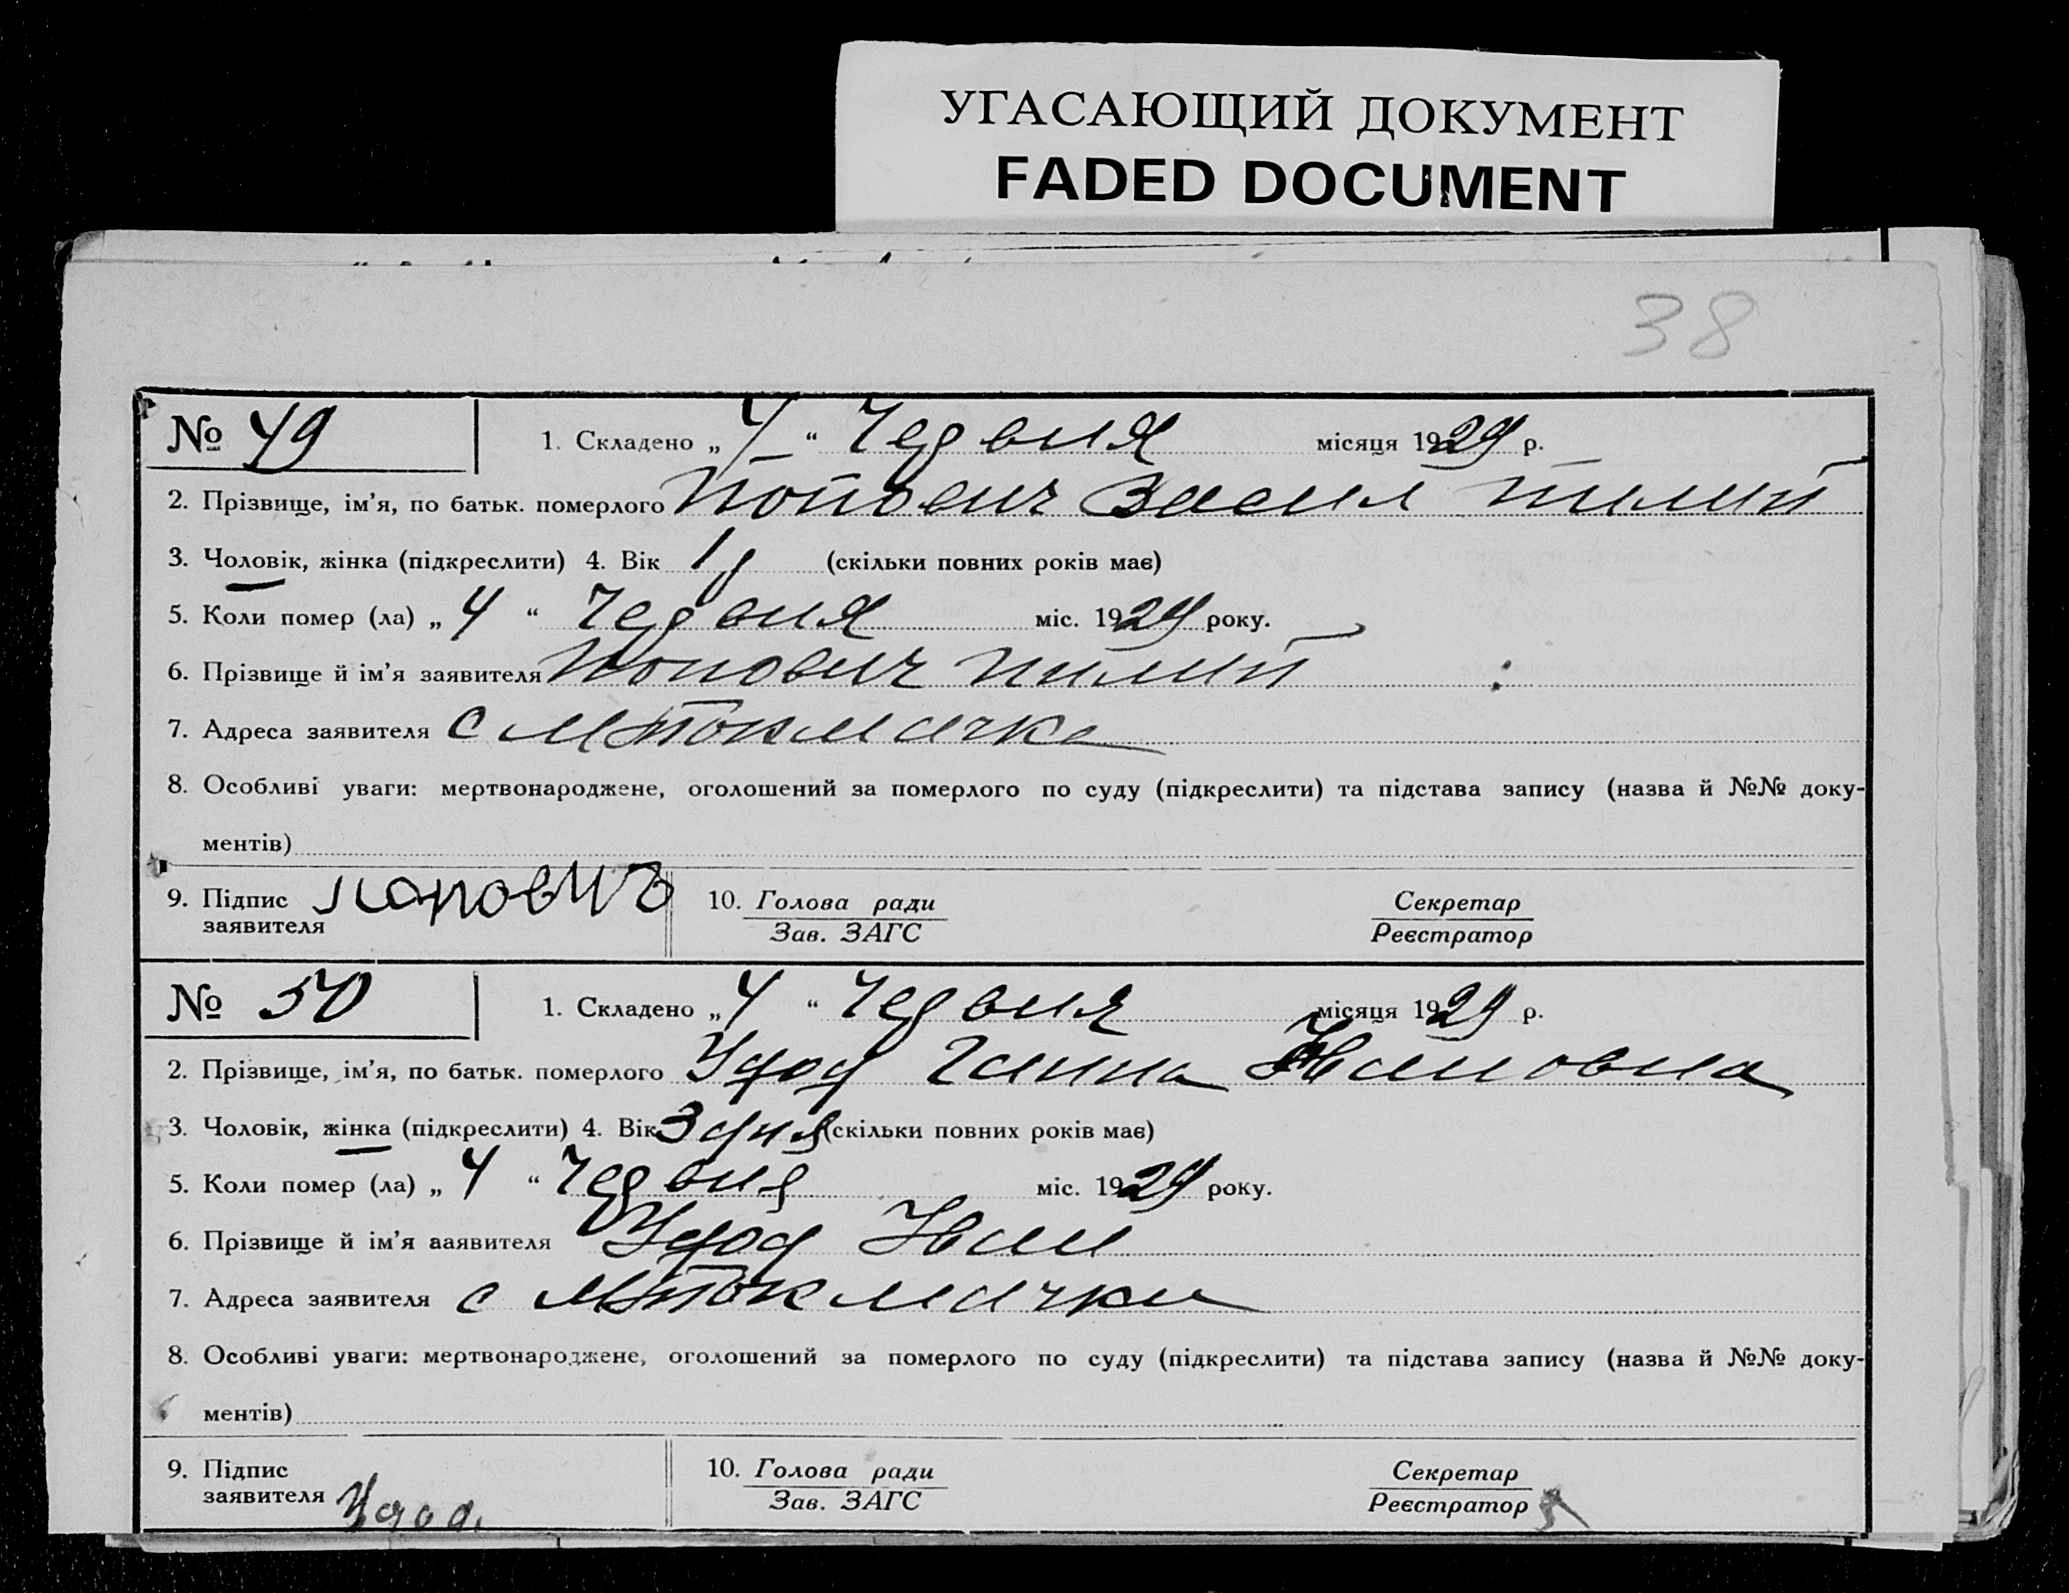 УГАСАЮЩИЙ ДОКУМЕНТ
FADED DOCUMENT
38
№ 49 1. Складено „ 4 “ Червня місяця 1929 р.
2. Прізвище, ім’я, по батьк. померлого Попович Васил Пилип
3. Чоловік, жінка (підкреслити) 4. Вік 1 р (скільки повних років має)
5. Коли помер (ла) „ 4 “ Червня міс. 1929 року.
6. Прізвище й ім’я заявителя Попович Пилип
7. Адреса заявителя с М Токмачка
8. Особливі уваги: мертвонароджене, оголошений за померлого по суду (підкреслити) та підстава запису (назва й №№ доку-
ментів)
9. Підпис заявителя Поповичъ 10. Голова ради Секретар
Зав. ЗАГС Реєстратор
№ 50 1. Складено „ 4 “ Червня місяця 1929 р.
2. Прізвище, ім’я, по батьк. померлого Удод Ганна Ивановна
3. Чоловік, жінка (підкреслити) 4. Вік 3 дня (скільки повних років має)
5. Коли помер (ла) „ 4 “ Червня міс. 1929 року.
6. Прізвище й ім’я ааявителя Удод Иван
7. Адреса заявителя с М Токмачка
8. Особливі уваги: мертвонароджене, оголошений за померлого по суду (підкреслити) та підстава запису (назва й №№ доку-
ментів)
9. Підпис заявителя Удод. 10. Голова ради Секретар
Зав. ЗАГС Реєстратор